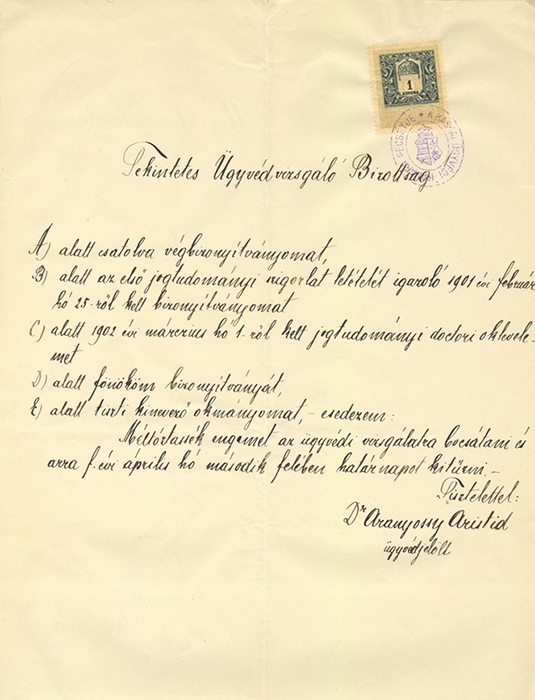 1
KORONA
Tekintetes Ügyvédvizsgáló Bizottság
A) alatt csatolva végbizonyítványomat,
B) alatt az első jogtudományi szigorlat letételét igazoló 1901 évi február
hó 25-ről kelt bizonyítványomat
C) alatt 1902 évi március hó 1-ről kelt jogtudományi doctori oklevele-
met
D) alatt főnököm bizonyítványát,
E) alatt tiszti kinevező okmányomat, - esedezem:
Méltóztassék engemet az ügyvédi vizsgálatra bocsátani és
arra f. évi április hó második felében határnapot kitűzni. -
Tisztelettel:
Dr Aranyossy Arisztid
ügyvédjelölt